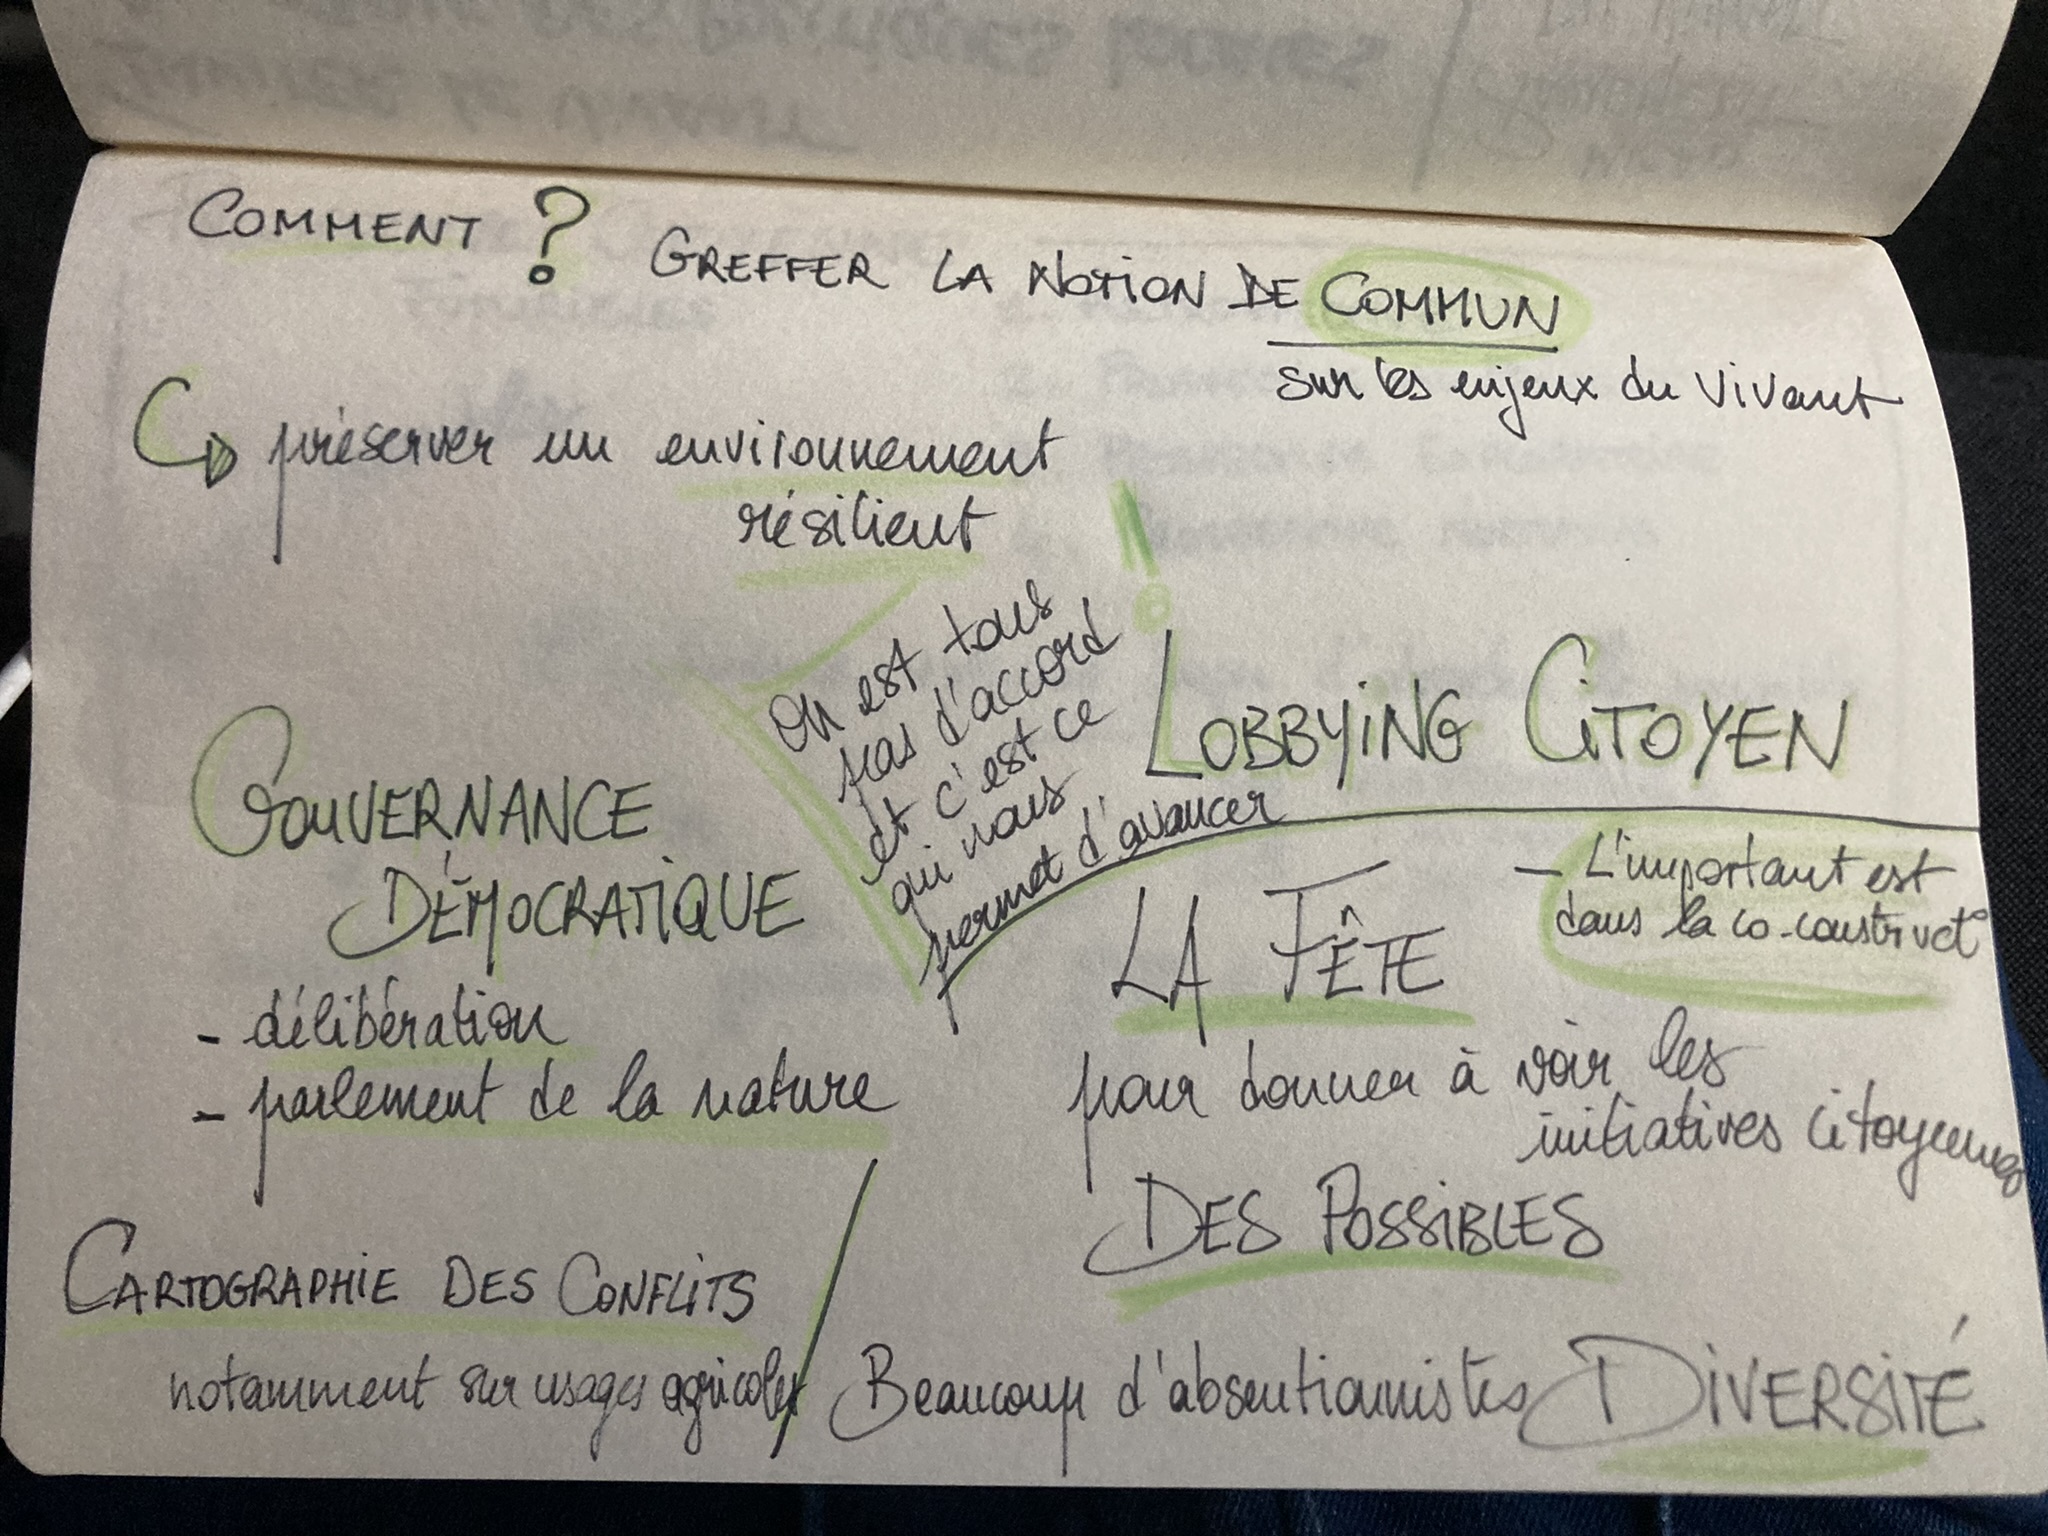 COMMENT ?
GREFFER LA NOTION DE COMMUN
sur les enjeux du vivant
préserver un environnement
résilient
!
On est tous
pas d'accord
et c'est ce
qui nous
permet d'avancer
LOBBYING CITOYEN
GOUVERNANCE
DÉMOCRATIQUE
- délibération
- parlement de la nature
- L'important est
dans la co-construct°
LA FÊTE
pour donner à voir les
initiatives citoyennes
DES POSSIBLES
CARTOGRAPHIE DES CONFLITS
notamment sur usages agricoles
Beaucoup d'absentionnistes
DIVERSITÉ